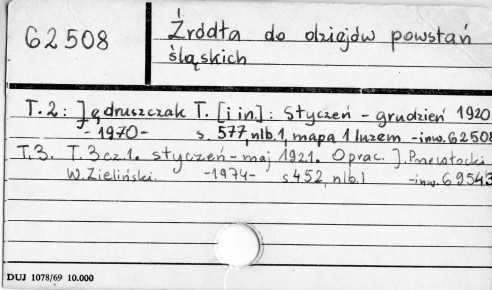 62508
Źródła do dziejów powstań
śląskich
T. 2: Jędruszczak T. [i in.]: styczeń - grudzień 1920
- 1970 - s. 577, nlb. 1, mapa 1 luzem - inw. 62508
T. 3. T. 3 cz. 1. styczeń - maj 1921. Oprac. J. Przewłocki
W. Zieliński. - 1974 - s 452, nlb. 1 - inw. 69543
DUJ 1078/69 10.000